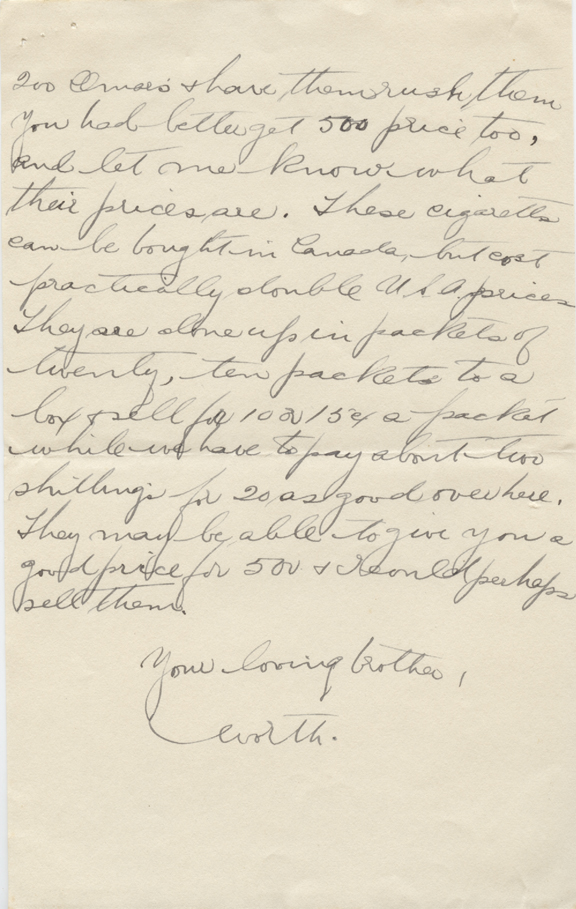 200 Omars & have them rush them
You had better get 500 price too,
and let me know what
their prices are. These cigaretts
can be bought in Canada, but cost
practically double U.S.A. prices
They are done up in packets of
twenty, ten packets to a
box & sell for 10 or 15¢ a packet
while we have to pay about two
shillings for 20 as good over here.
They may be able to give you a
good price for 500 & I could perhaps
sell them.
Your loving brother,
Worth.